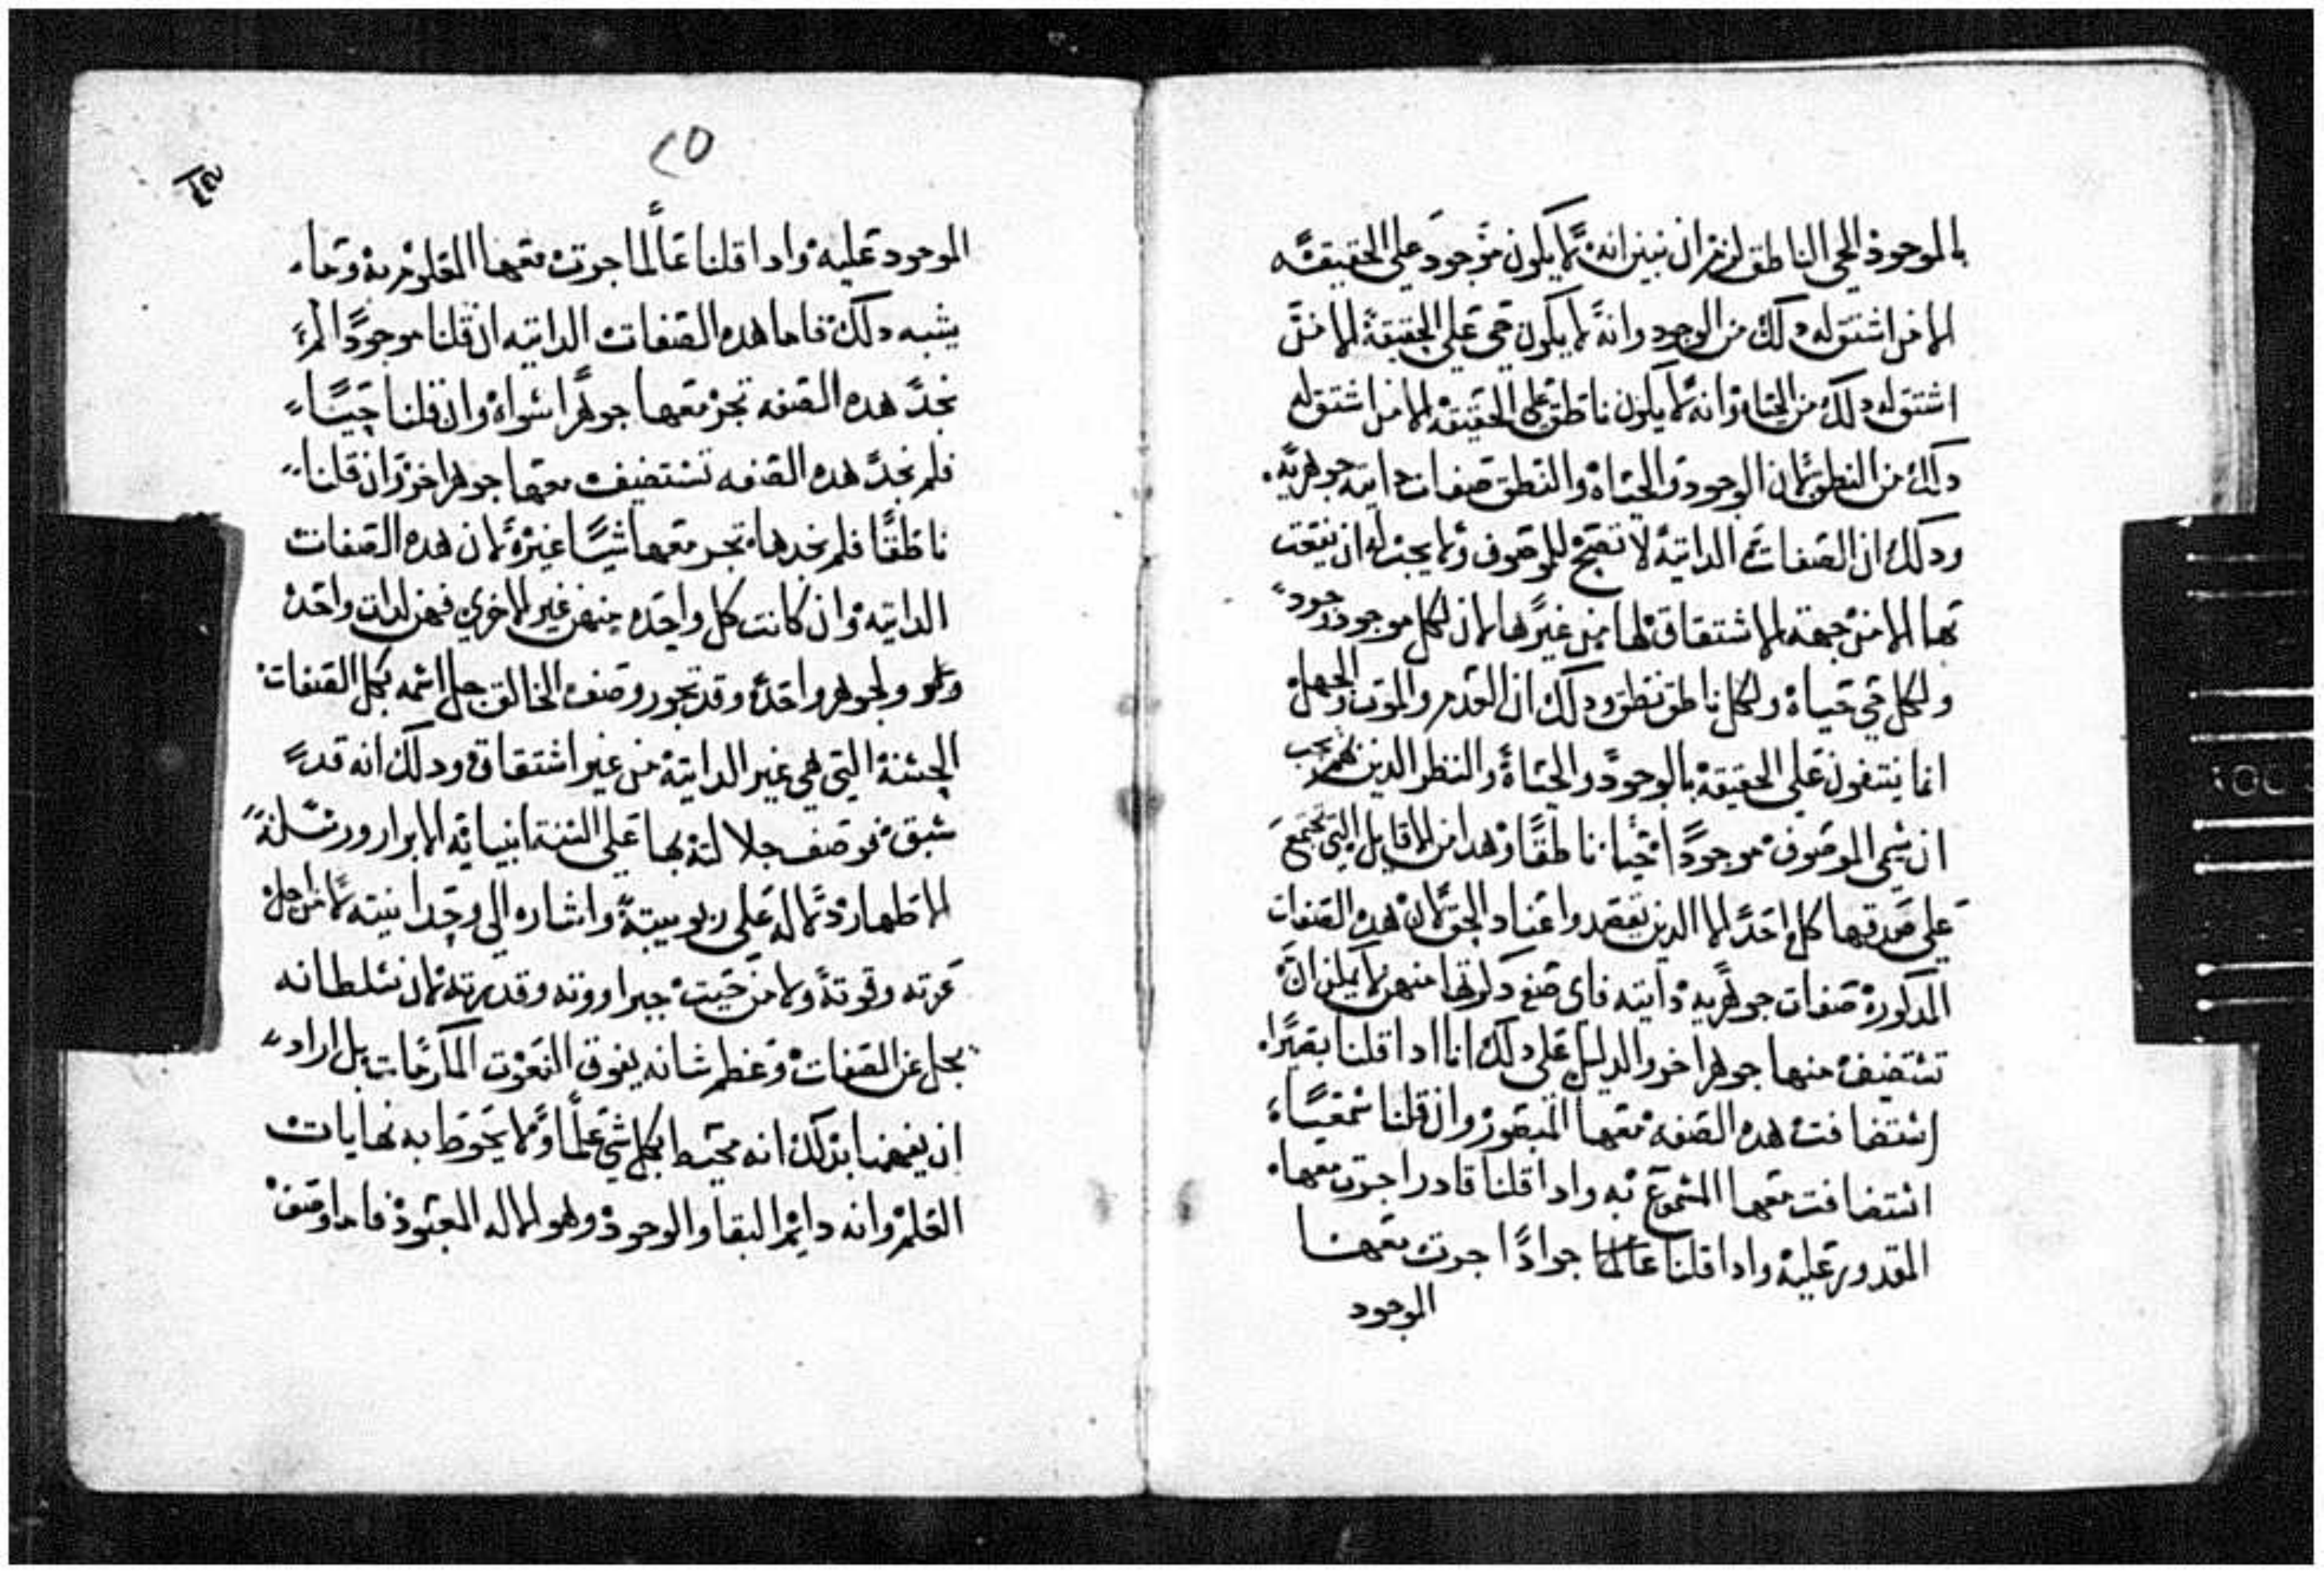 بالموجود الحي الناطق لزم ان نبين انه لا يكون موجود علي الحقيقه
الا من اشتق له دلك من الوجود وانه لا يكون حي علي الحقيقة الا من
اشتق له دلك من الحياة وانه لا يكون ناطق علي الحقيقه الا من اشتق له
دلك من النطق لان الوجود والحياة والنطق صفات داتيه جوهريه
ودلك ان الصفات الداتية لا تصح للموصوف ولا يجب له ان ينعت
بها الا من جهة الاشتقاق لها من غيرها لان لكل موجود وجود
ولكل حي حياة ولكل ناطق نطق ودلك ان العدم والموت والجهل
انما ينتفون علي الحقيقة بالوجود والحياة والنطق الدين لهم يجب
ان يسمي الموصوف موجودا حيا ناطقا وهدا من الاقاويل التي تجتمع
علي صدقها كل احد الا الدين تعمدوا عناد الحق لان هده الصفات
المدكورة صفات جوهرية داتيه فاي صفه دكرتها منهن لا يلزم ان
تستضيف منها جوهرا اخر والدليل علي دلك انا ادا قلنا بصيرا
استضافت هده الصفه معها المبصور وان قلنا سمعيا
استضافت معها المسموع به وادا قلنا قادرا جرت معها
المقدور علية وادا قلنا عالما جوادا جرت معها
الموجود
٢٥
الموجود عليه وادا قلنا عالما جرت معها المعلوم به وما
يشبه دلك فاما هده الصفات الداتيه ان قلنا موجودا لم
نجد هده الصفه تجر معها جوهرا سواه وان قلنا حيا
فلم نجد هده الصفه تستضيف معها جوهرا اخر وان قلنا
ناطقا فلم نجدها تجر معها شيا غيره لان هده الصفات
الداتيه وان كانت كل واحده منهن غير الاخري فهن لدات واحده
ولجوهر واحد وقد تجوز وصف الخالق جل اسمه بكل الصفات
الحسنة التي هي غير الداتية من غير اشتقاق ودلك انه قد
سبق فوصف جلالته بها علي السنة انبيايه الابرار ورسله
الاطهار دلاله علي ربوبيتة واشاره الي وحدانيته لا من اجل
عزته وقوتة ولا من حيت جبراووته وقدرته لان سلطانه
يجل عن الصفات وعظم شانه يفوق النعوت المكرمات بل اراد
ان يفهمنا بدلك انه محيط بكل شي علما ولا يحوط به نهايات
العلم وانه دايم البقا والوجود وهو الاله المعبود فاما وصف